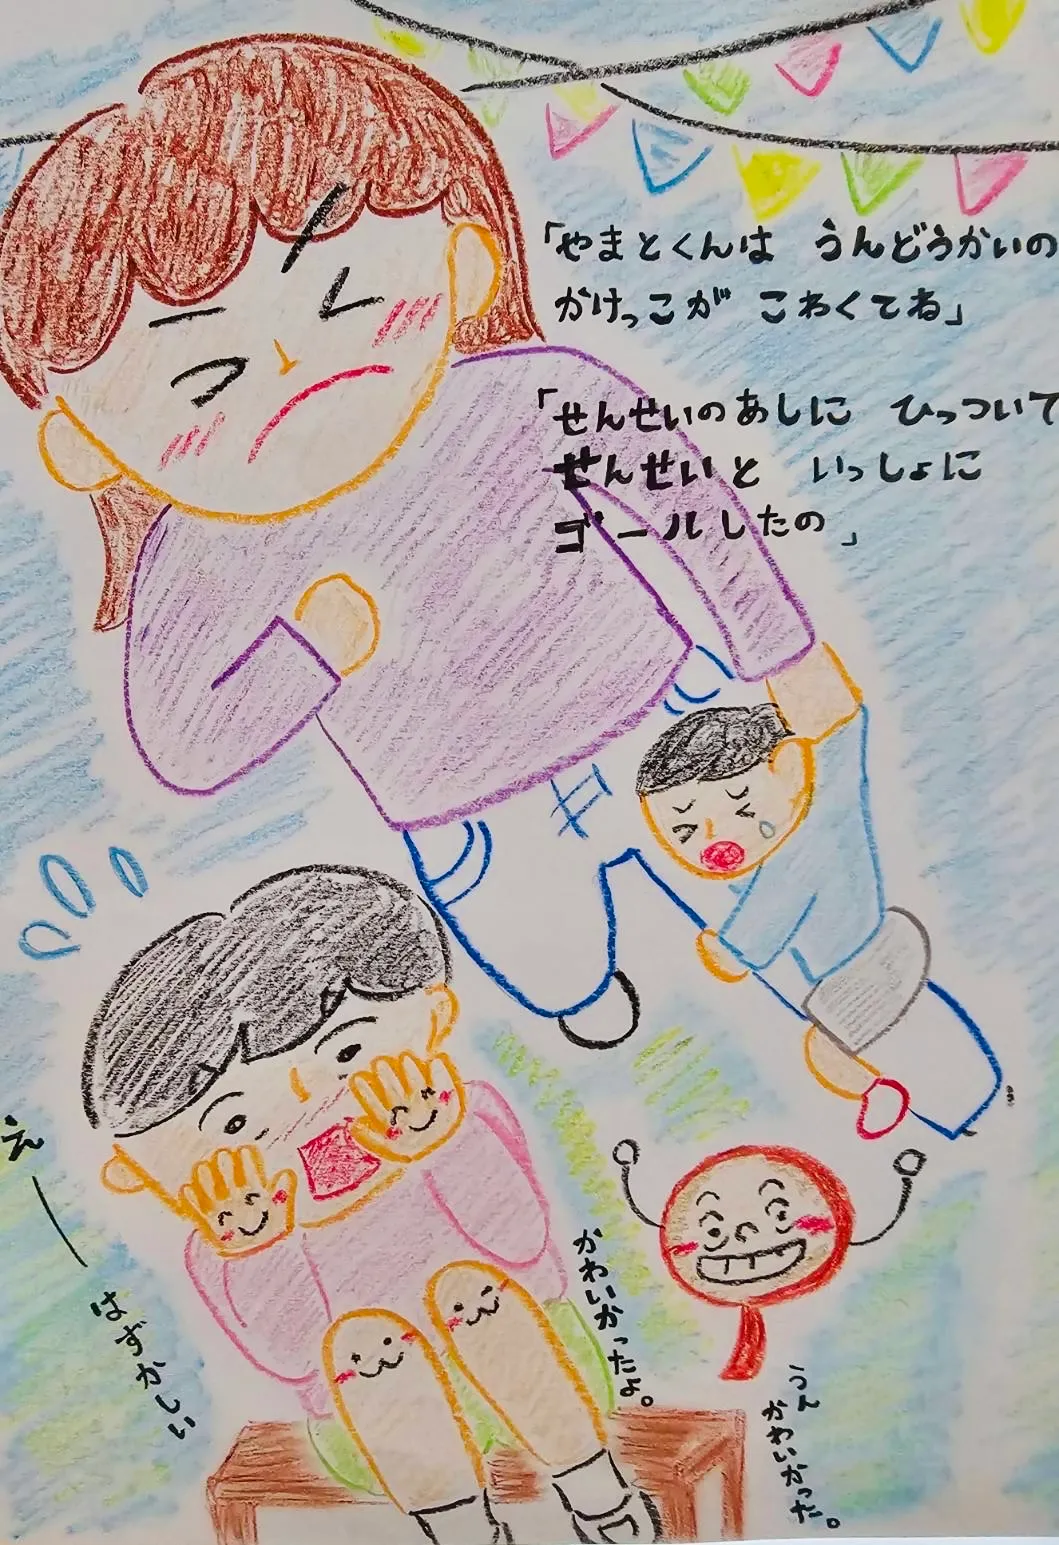 「やまとくんは うんどうかいの
かけっこが こわくてね」
「せんせいのあしに ひっついて
せんせいと いっしょに
ゴールしたの」
えー
はずかしい
かわいかったよ。
うん
かわいかった。